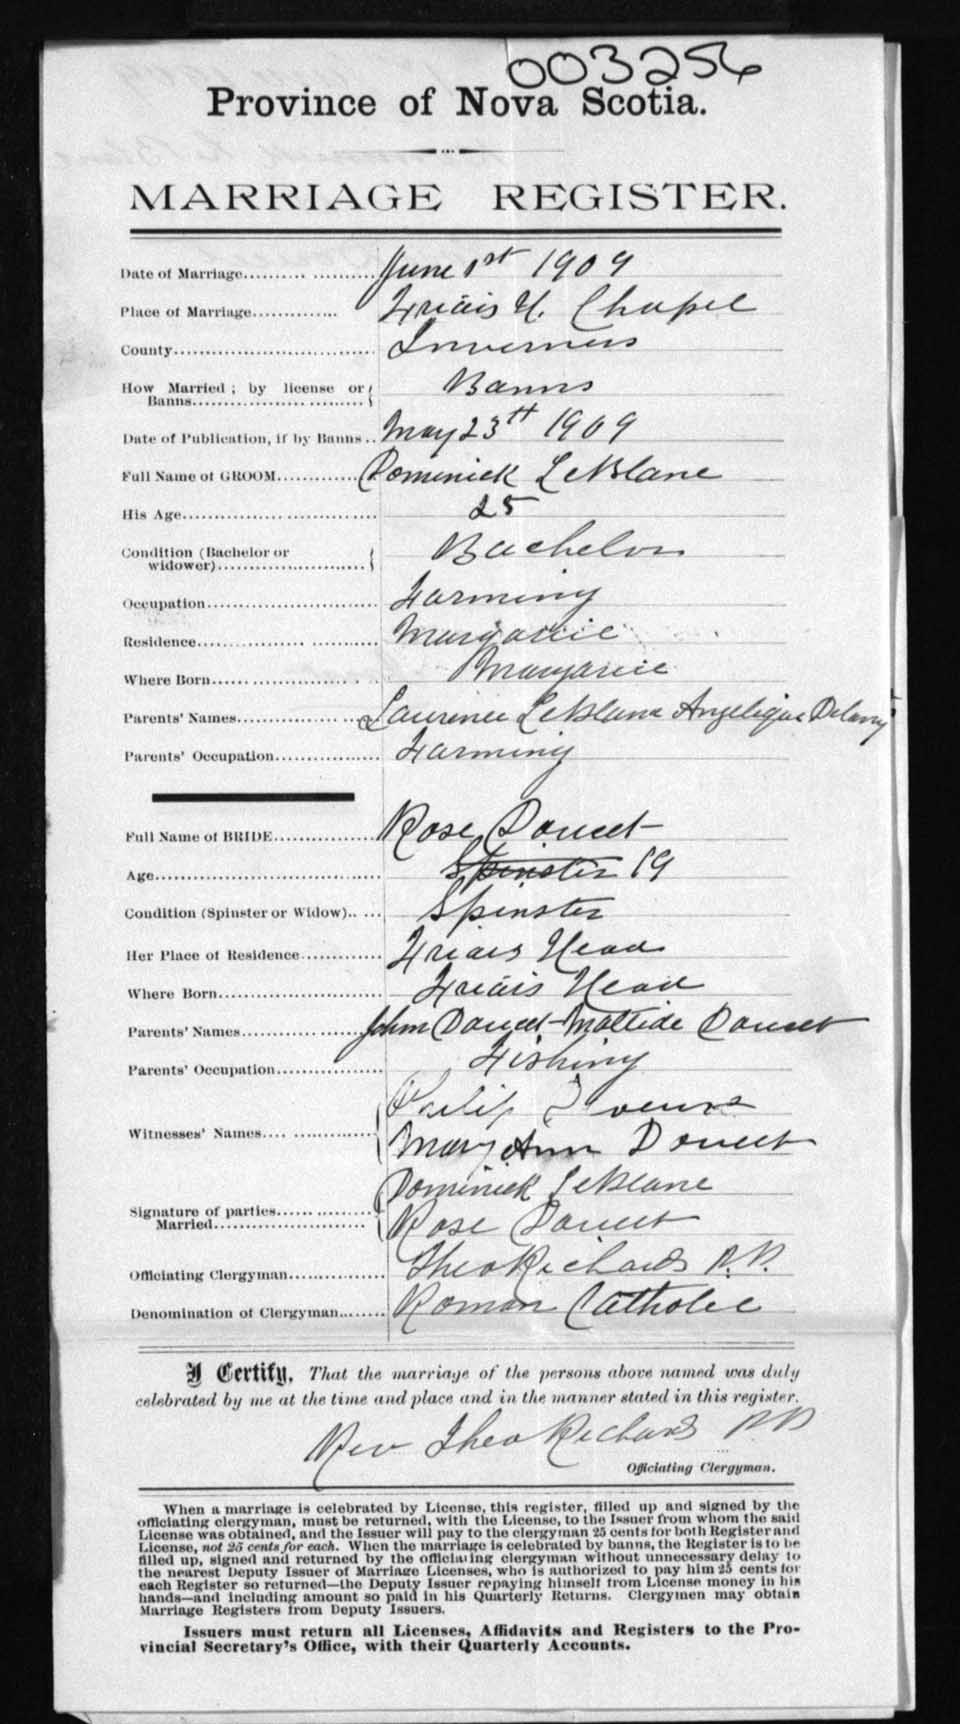 003256
Province of Nova Scotia.
MARRIAGE REGISTER.
Date of Marriage.......... June 1st 1909
Place of Marriage.......... Friars H. Chapel
County.......... Inverness
How Married; by license or Banns.......... Banns
Date of Publication, if by Banns.. May 23th 1909
Full Name of GROOM.......... Dominick LeBlanc
His Age.......... 25
Condition (Bachelor or widower).......... Bachelor
Occupation.......... Farming
Residence.......... Margaree
Where Born.......... Margaree
Parents' Names.......... Laurence LeBlanc Angelique Delany
Parents' Occupation.......... Farming
Full Name of BRIDE.......... Rose Doucet
Age.......... Spinster 19
Condition (Spinster or Widow)..... Spinster
Her Place of Residence.......... Friars Head
Where Born.......... Friars Head
Parents' Names.......... John Doucet - Matilde Doucet
Parents' Occupation.......... Fishing
Witnesses' Names.......... Philip
Mary Ann Doucet
Signature of parties Married.......... Dominick LeBlanc
Rose Doucet
Officiating Clergyman.......... Theo Richards P.P.
Denomination of Clergyman....... Roman Catholic
I Certify, That the marriage of the persons above named was duly
celebrated by me at the time and place and in the manner stated in this register.
Rev Theo Richards P.P.
Officiating Clergyman.
When a marriage is celebrated by License, this register, filled up and signed by the
officiating clergyman, must be returned, with the License, to the Issuer from whom the said
License was obtained, and the Issuer will pay to the clergyman 25 cents for both Register and
License, not 25 cents for each. When the marriage is celebrated by banns, the Register is to be
filled up, signed and returned by the officiating clergyman without unnecessary delay to
the nearest Deputy Issuer of Marriage Licenses, who is authorized to pay him 25 cents for
each Register so returned—the Deputy Issuer repaying himself from License money in his
hands—and including amount so paid in his Quarterly Returns. Clergymen may obtain
Marriage Registers from Deputy Issuers.
Issuers must return all Licenses, Affidavits and Registers to the Pro-
vincial Secretary's Office, with their Quarterly Accounts.